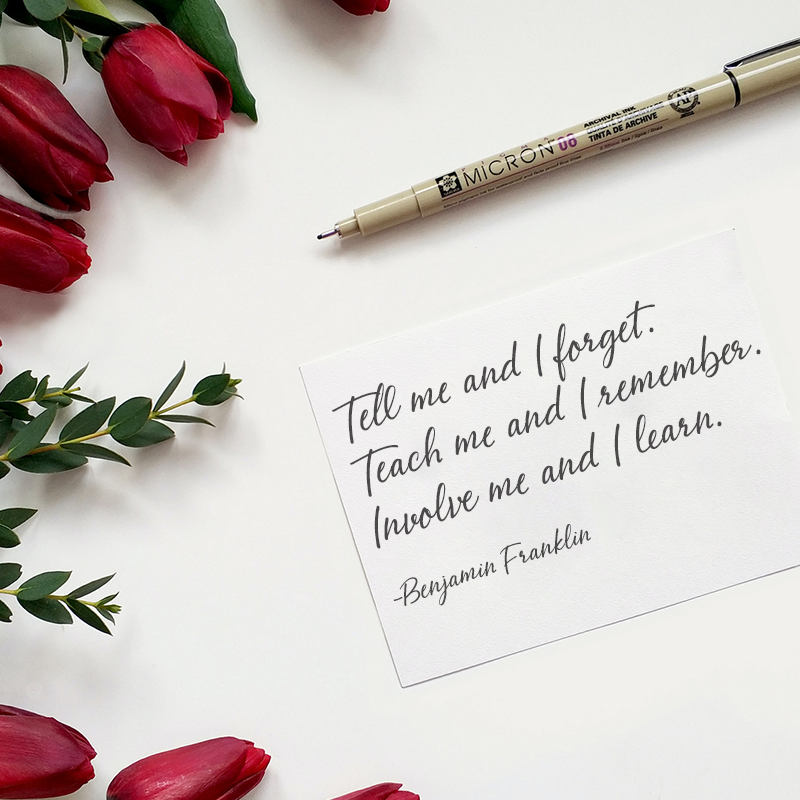 MICRON 06
ARCHIVAL INK
TINTA DE ARCHIVE
AP
Tell me and I forget.
Teach me and I remember.
Involve me and I learn.
-Benjamin Franklin